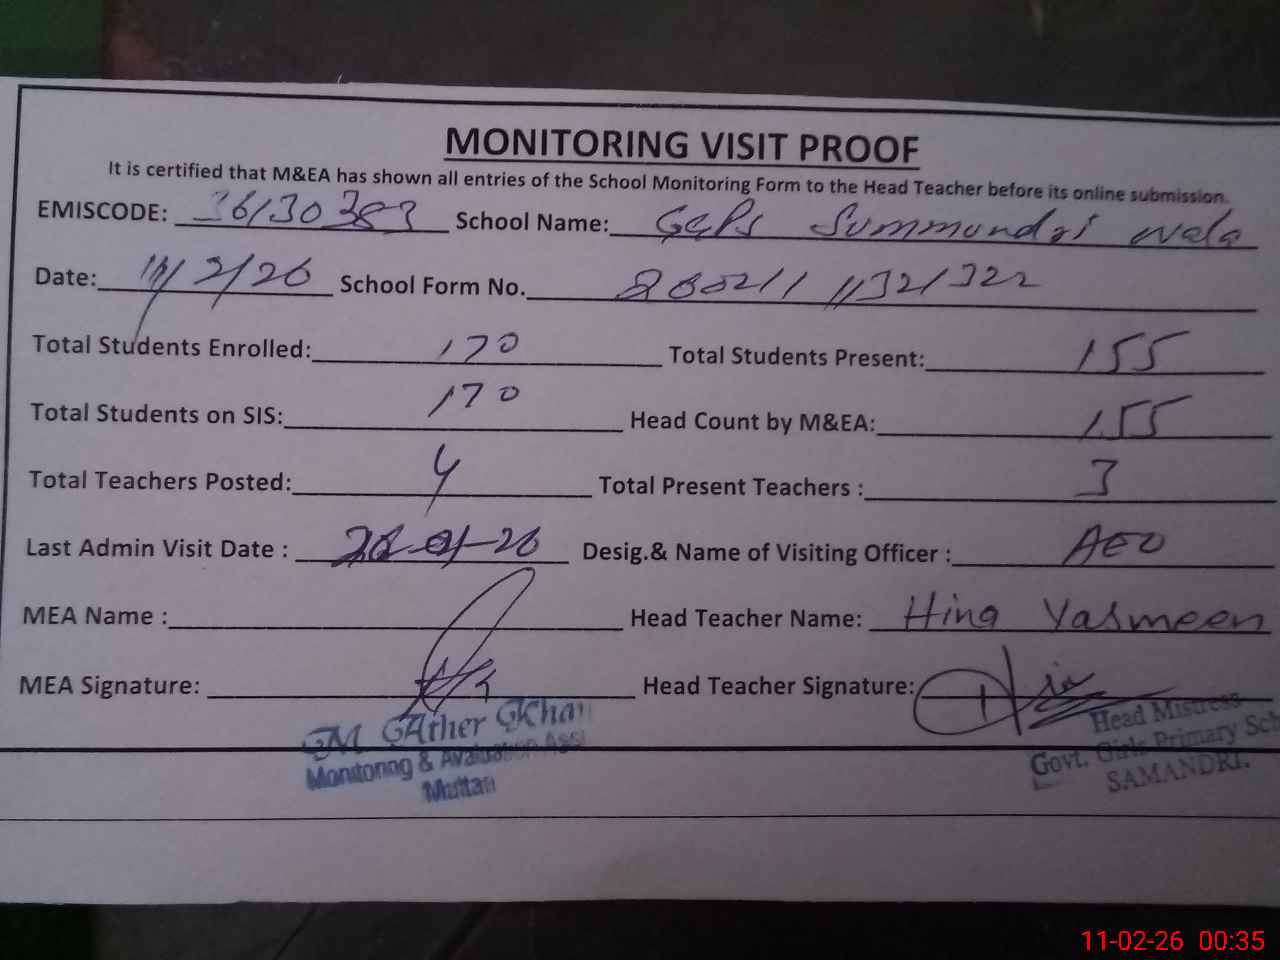 MONITORING VISIT PROOF
It is certified that M&EA has shown all entries of the School Monitoring Form to the Head Teacher before its online submission.
EMISCODE: 36130383 School Name: GGPS Summundri wala
Date: 11/2/26 School Form No.
Total Students Enrolled: 170 Total Students Present: 155
Total Students on SIS: 170 Head Count by M&EA: 155
Total Teachers Posted: 4 Total Present Teachers : 3
Last Admin Visit Date : Desig.& Name of Visiting Officer : AEO
MEA Name : Head Teacher Name: Hina Yasmeen
MEA Signature: Head Teacher Signature:
M Ather Khan
Monitoring & Evaluation Assi
Multan
Head Mistress
Govt. Girls Primary Sch
SAMANDRI.
11-02-26 00:35